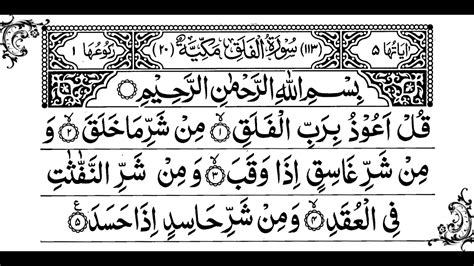 اٰیاتُهَا ۵ (۱۱۳) سُوْرَةُ الْفَلَقِ مَكِّیَّةٌ (۲۰) رُكُوْعُهَا ۱
بِسْمِ اللّٰهِ الرَّحْمٰنِ الرَّحِیْمِ
قُلْ اَعُوْذُ بِرَبِّ الْفَلَقِ ۱ مِنْ شَرِّ مَا خَلَقَ ۲ وَ
مِنْ شَرِّ غَاسِقٍ اِذَا وَقَبَ ۳ وَ مِنْ شَرِّ النَّفّٰثٰتِ
فِی الْعُقَدِ ۴ وَ مِنْ شَرِّ حَاسِدٍ اِذَا حَسَدَ ۵ ع